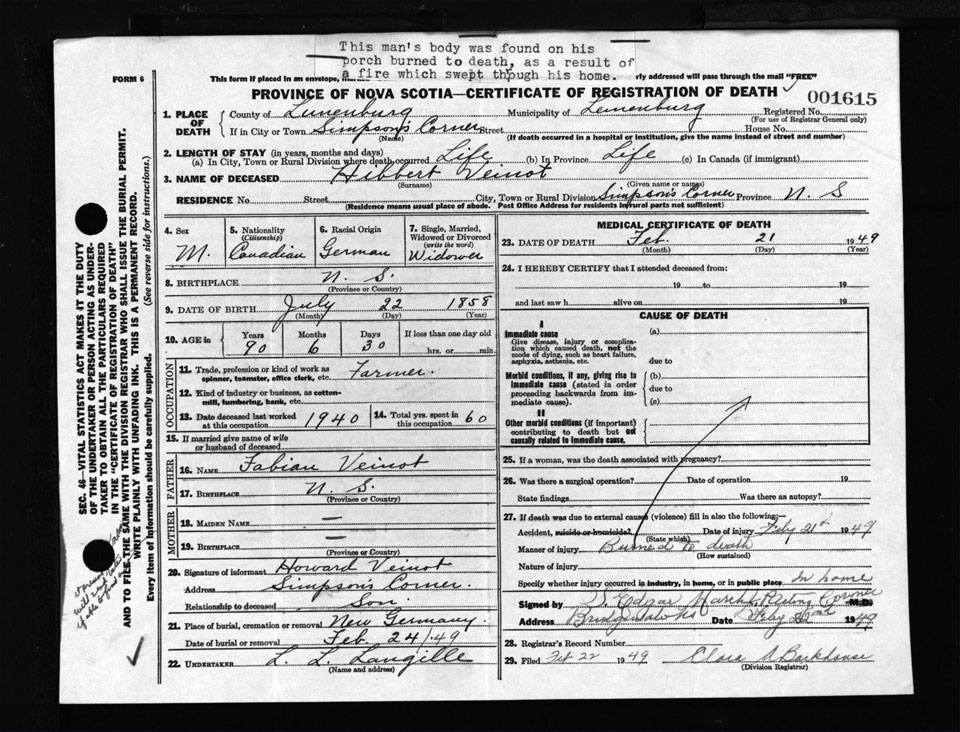 This man's body was found on his
porch burned to death, as a result of
a fire which swept through his home.
FORM 6
This form if placed in an envelope, rly addressed will pass through the mail "FREE"
PROVINCE OF NOVA SCOTIA—CERTIFICATE OF REGISTRATION OF DEATH
001615
1. PLACE OF DEATH
County of Lunenburg Municipality of Lunenburg Registered No.
(For use of Registrar General only)
If in City or Town Simpson's Corner Street House No.
(Name) (If death occurred in a hospital or institution, give the name instead of street and number)
2. LENGTH OF STAY (in years, months and days)
(a) In City, Town or Rural Division where death occurred Life (b) In Province Life (c) In Canada (if immigrant)
3. NAME OF DECEASED Hibbert Veinot
(Surname) (Given name or names)
RESIDENCE No. Street City, Town or Rural Division Simpson's Corner Province N. S
(Residence means usual place of abode. Post Office Address for residents in rural parts not sufficient)
4. Sex M.
5. Nationality (Citizenship) Canadian
6. Racial Origin German
7. Single, Married, Widowed or Divorced (write the word) Widower
8. BIRTHPLACE N. S.
(Province or Country)
9. DATE OF BIRTH July 22 1858
(Month) (Day) (Year)
10. AGE in Years Months Days If less than one day old
90 6 30 hrs. or min.
OCCUPATION
11. Trade, profession or kind of work as spinner, teamster, office clerk, etc. Farmer.
12. Kind of industry or business, as cotton-mill, lumbering, bank, etc.
13. Date deceased last worked at this occupation 1940
14. Total yrs. spent in this occupation 60
15. If married give name of wife or husband of deceased
FATHER
16. NAME Fabian Veinot
17. BIRTHPLACE N. S.
(Province or Country)
MOTHER
18. MAIDEN NAME —
19. BIRTHPLACE —
(Province or Country)
20. Signature of informant Howard Veinot
Address Simpson's Corner.
Relationship to deceased Son
21. Place of burial, cremation or removal New Germany.
Date of burial or removal Feb. 24/49
22. UNDERTAKER L. L. Langille
(Name and address)
MEDICAL CERTIFICATE OF DEATH
23. DATE OF DEATH Feb. 21 1949
(Month) (Day) (Year)
24. I HEREBY CERTIFY that I attended deceased from:
19 to 19
and last saw h alive on 19
CAUSE OF DEATH
I
Immediate cause
Give disease, injury or complication which caused death, not the mode of dying, such as heart failure, asphyxia, asthenia, etc.
(a)
due to
Morbid conditions, if any, giving rise to immediate cause (stated in order proceeding backwards from immediate cause).
(b)
due to
(c)
II
Other morbid conditions (if important) contributing to death but not causally related to immediate cause.
25. If a woman, was the death associated with pregnancy?
26. Was there a surgical operation? Date of operation 19
State findings Was there autopsy?
27. If death was due to external causes (violence) fill in also the following:
Accident, suicide or homicide? Date of injury Feby 21st 1949
(State which)
Manner of injury Burned to death
(How sustained)
Nature of injury
Specify whether injury occurred in industry, in home, or in public place in home
Signed by Edgar Acting Coroner M.D.
Address Bridgewater NS Date Feby 22nd 1949
28. Registrar's Record Number
29. Filed Feb 22 1949 Clara A Barkhouse
(Division Registrar)
SEC. 46—VITAL STATISTICS ACT MAKES IT THE DUTY
OF THE UNDERTAKER OR PERSON ACTING AS UNDER-
TAKER TO OBTAIN ALL THE PARTICULARS REQUIRED
IN THE "CERTIFICATE OF REGISTRATION OF DEATH"
AND TO FILE THE SAME WITH THE DIVISION REGISTRAR WHO SHALL ISSUE THE BURIAL PERMIT.
WRITE PLAINLY WITH UNFADING INK. THIS IS A PERMANENT RECORD.
Every item of information should be carefully supplied. (See reverse side for instructions.)